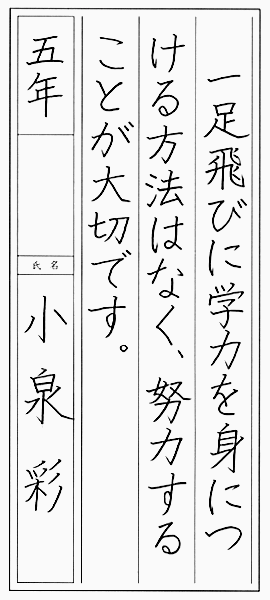 一足飛びに学力を身につ
ける方法はなく、努力する
ことが大切です。
五年
氏名
小泉彩